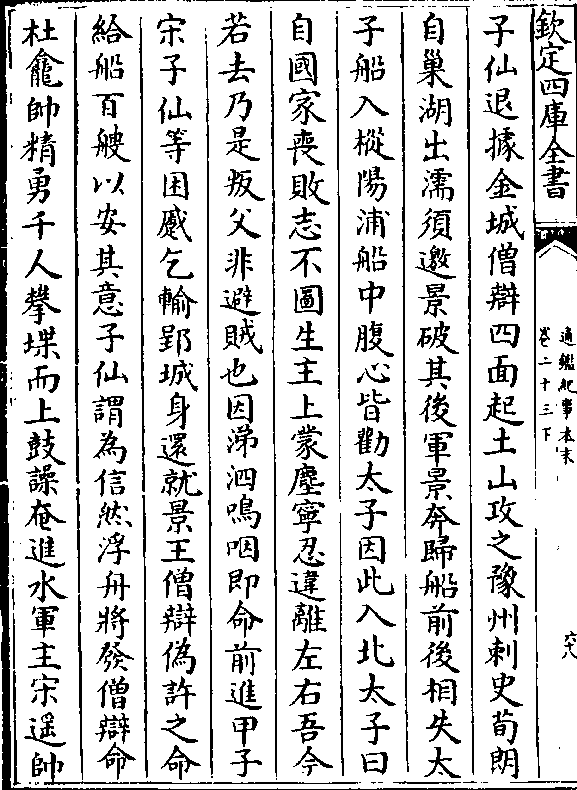 欽定四庫全書
通鑑紀事本末
卷二十三下
六八
子仙退據金城僧辯四面起土山攻之豫州刺史荀朗
自巢湖出濡須邀景破其後軍景奔歸船前後相失太
子船入樅陽浦船中腹心皆勸太子因此入北太子曰
自國家喪敗志不圖生主上蒙塵寧忍違離左右吾今
若去乃是叛父非避賊也因涕泗嗚咽即命前進甲子
宋子仙等困蹙乞輸郢城身還就景王僧辯偽許之命
給船百艘以安其意子仙謂為信然浮舟將發僧辯命
杜龕帥精勇千人攀堞而上鼓譟奄進水軍主宋遥帥